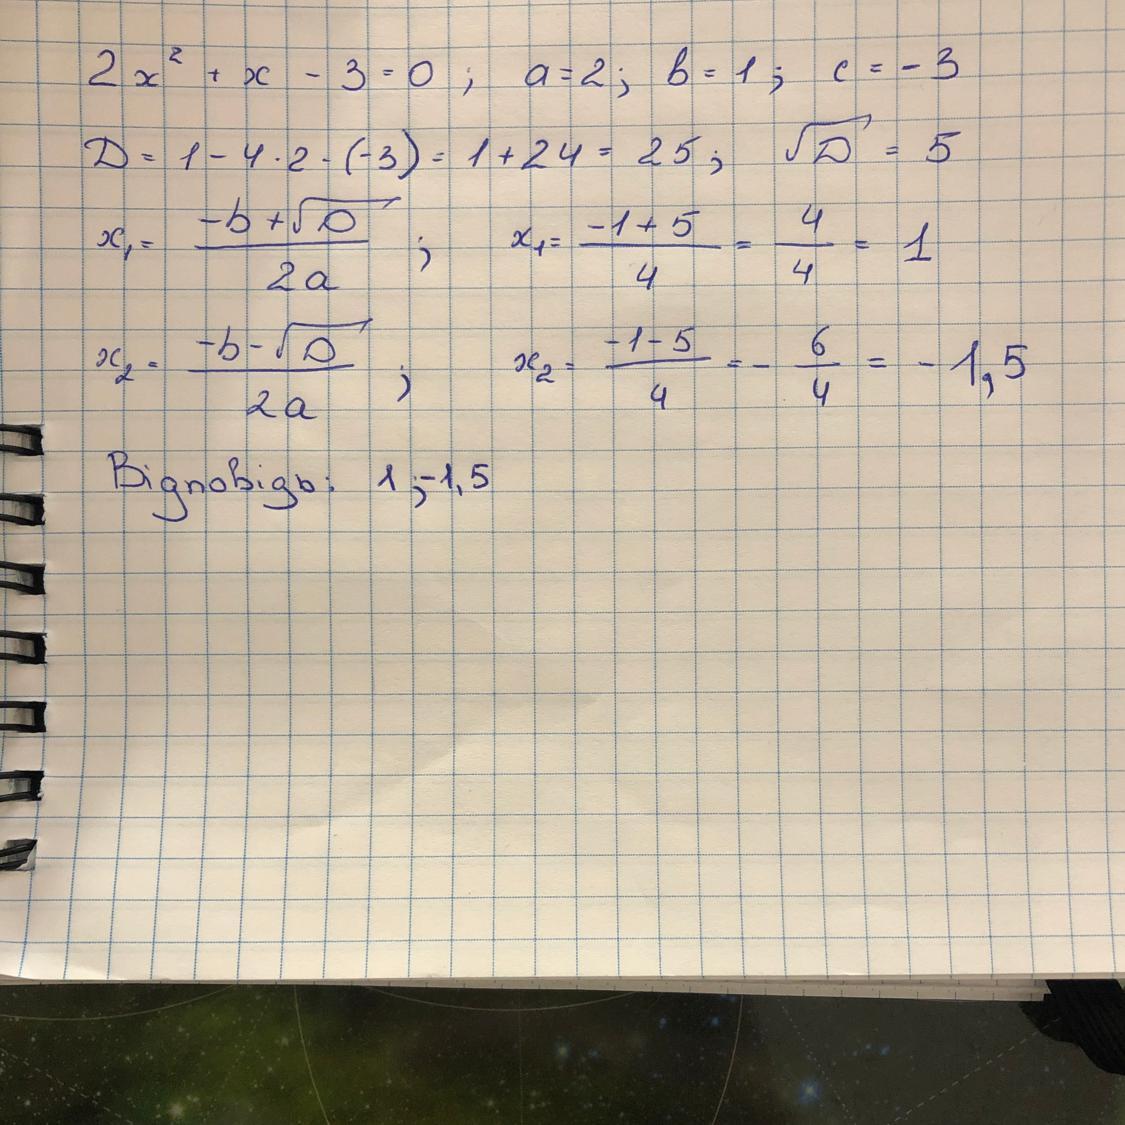 2x² + x - 3 = 0 ; a = 2 ; b = 1 ; c = - 3
D = 1 - 4 · 2 · (-3) = 1 + 24 = 25 ; √D = 5
x₁ = (-b + √D) / 2a ; x₁ = (-1 + 5) / 4 = 4/4 = 1
x₂ = (-b - √D) / 2a ; x₂ = (-1 - 5) / 4 = - 6/4 = - 1,5
Відповідь: 1 ; -1,5